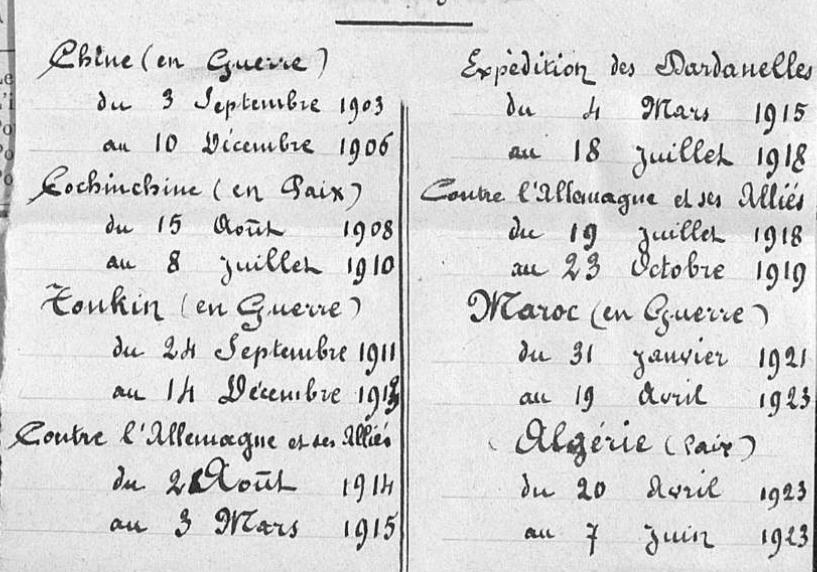 Chine (en Guerre)
du 3 Septembre 1903
au 10 Décembre 1906
Cochinchine (en Paix)
du 15 Août 1908
au 8 Juillet 1910
Tonkin (en Guerre)
du 24 Septembre 1911
au 14 Décembre 1913
Contre l'Allemagne et ses Alliés
du 2 Août 1914
au 3 Mars 1915
Expédition des Dardanelles
du 4 Mars 1915
au 18 Juillet 1918
Contre l'Allemagne et ses Alliés
du 19 Juillet 1918
au 23 Octobre 1919
Maroc (en Guerre)
du 31 Janvier 1921
au 19 Avril 1923
Algérie (Paix)
du 20 Avril 1923
au 7 Juin 1923